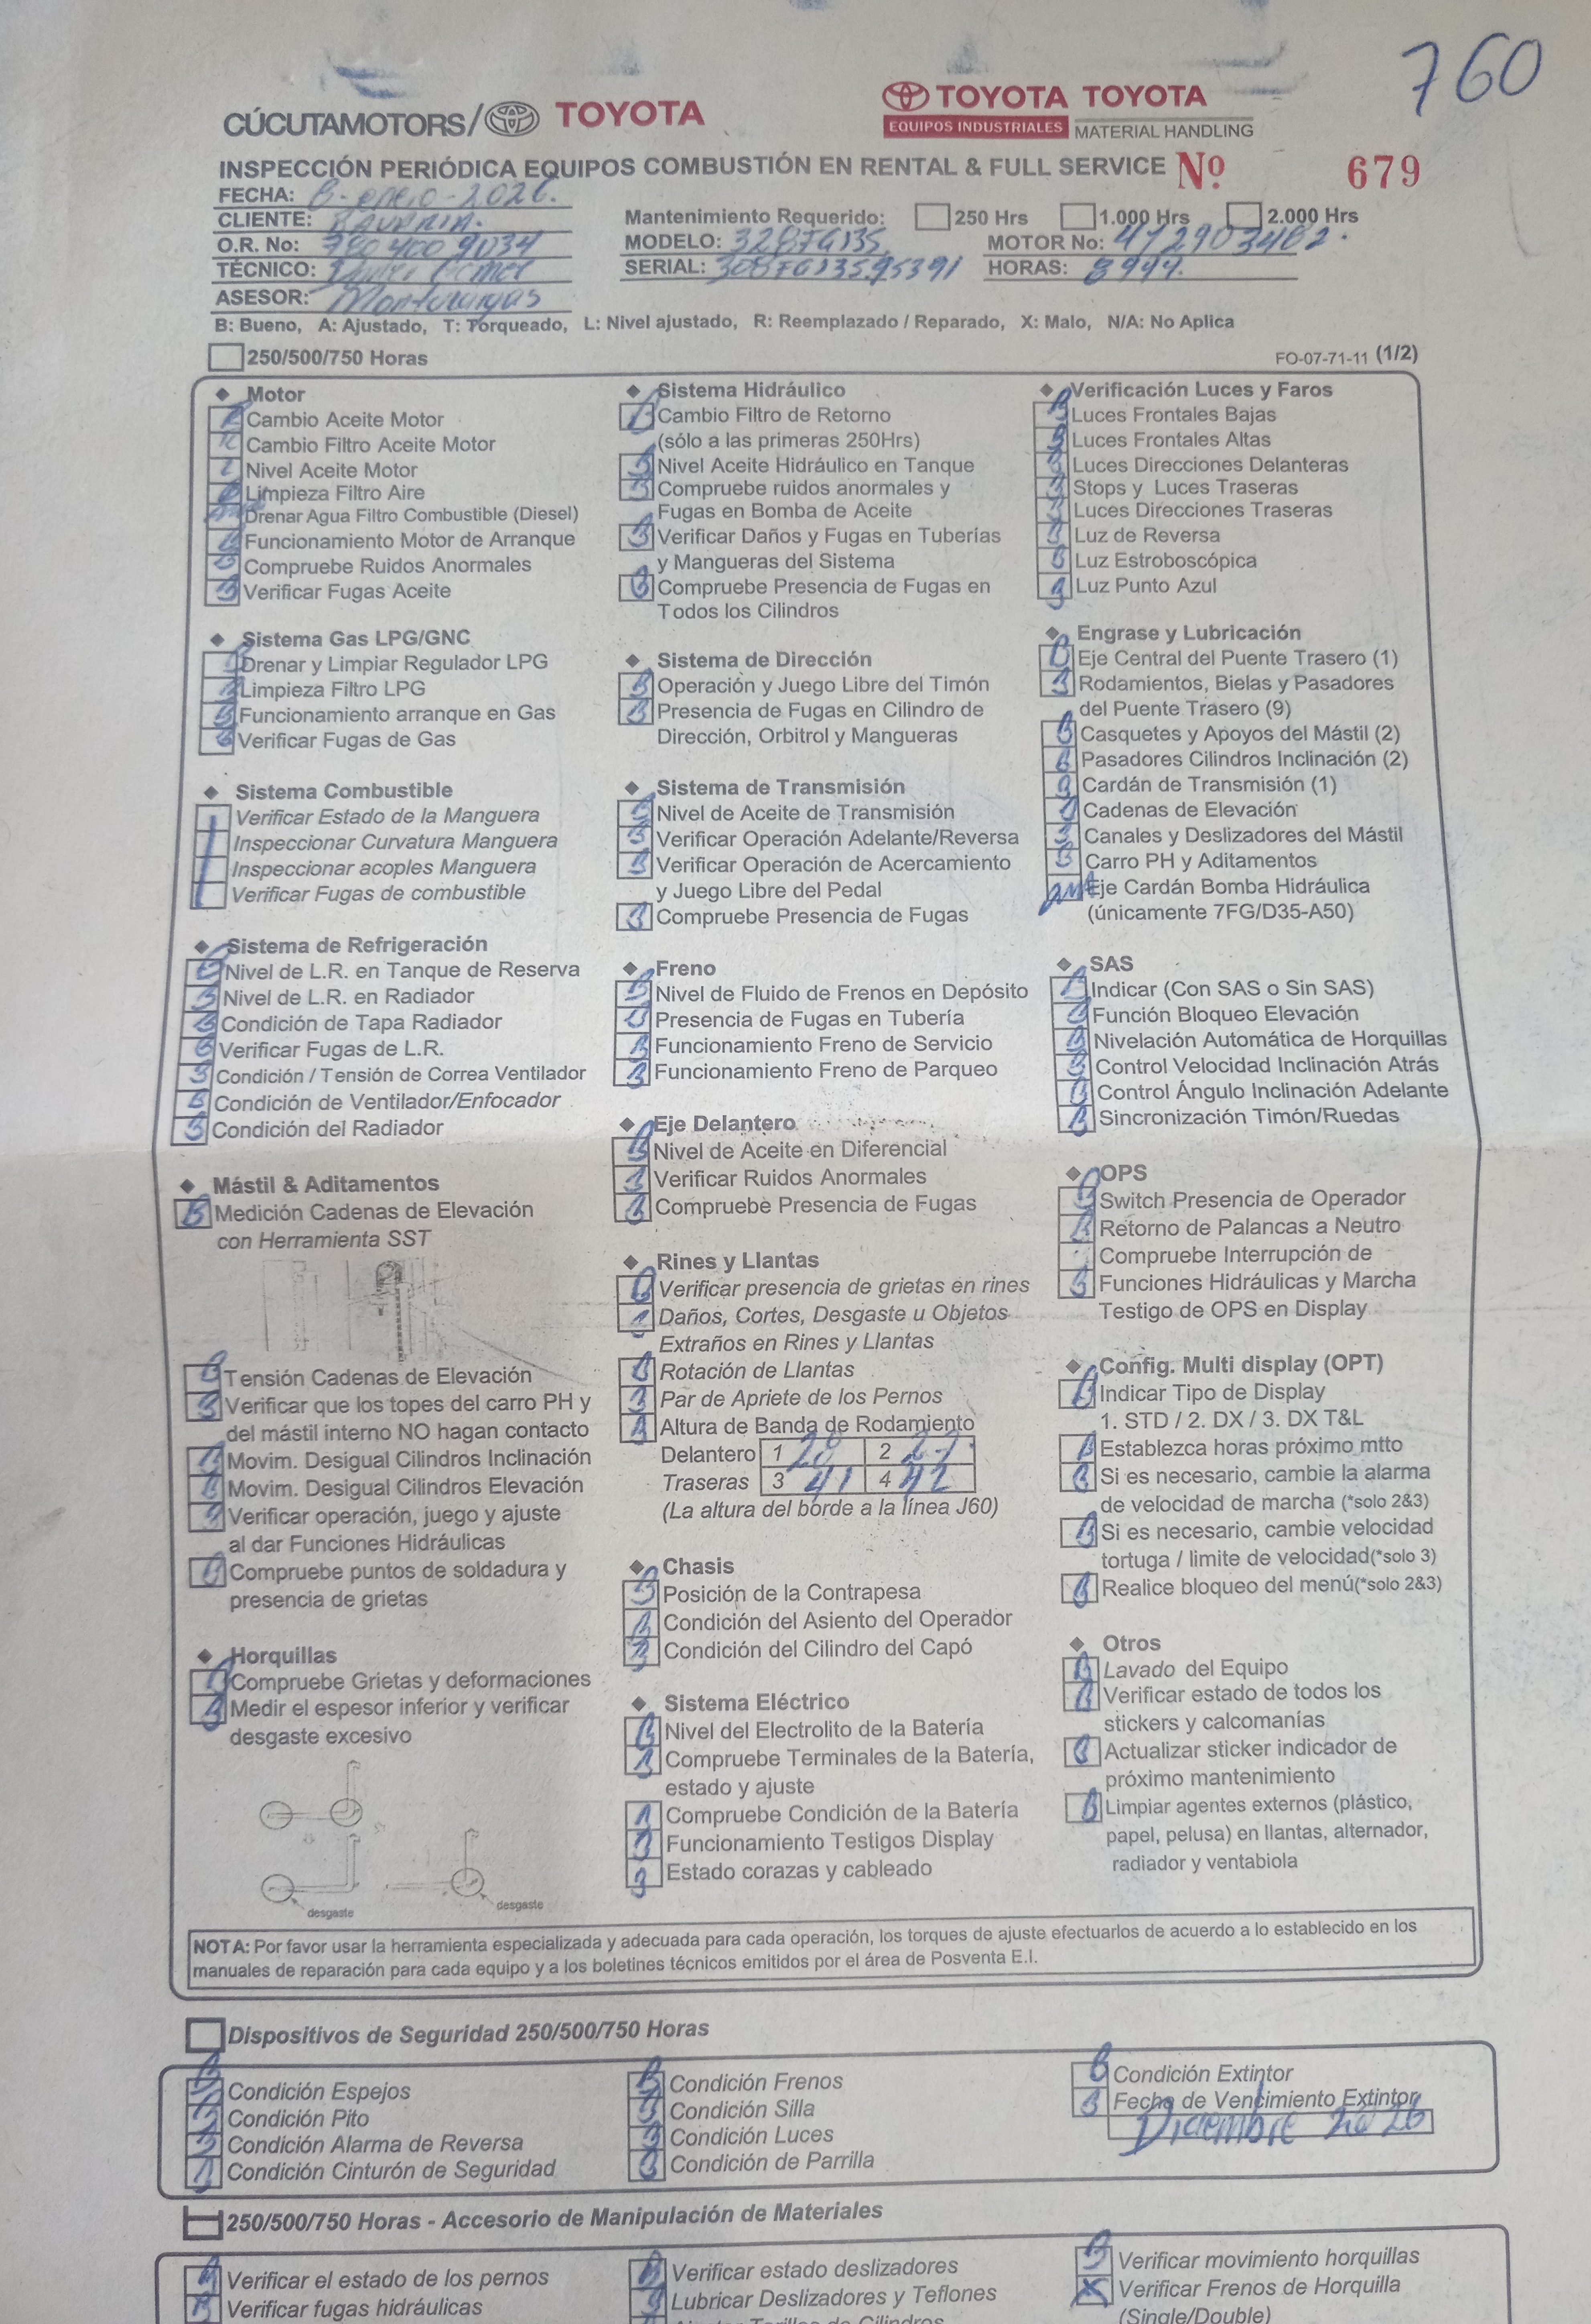 760
CÚCUTAMOTORS/ TOYOTA
TOYOTA TOYOTA
EQUIPOS INDUSTRIALES MATERIAL HANDLING
INSPECCIÓN PERIÓDICA EQUIPOS COMBUSTIÓN EN RENTAL & FULL SERVICE Nº 679
FECHA: 8-enero-2026.
CLIENTE: BAVARIA.
O.R. No:
TÉCNICO:
ASESOR: Montacargas
Mantenimiento Requerido: 250 Hrs 1.000 Hrs 2.000 Hrs
MODELO: MOTOR No:
SERIAL: HORAS: 8944.
B: Bueno, A: Ajustado, T: Torqueado, L: Nivel ajustado, R: Reemplazado / Reparado, X: Malo, N/A: No Aplica
250/500/750 Horas
FO-07-71-11 (1/2)
Motor
Cambio Aceite Motor
Cambio Filtro Aceite Motor
Nivel Aceite Motor
Limpieza Filtro Aire
Drenar Agua Filtro Combustible (Diesel)
Funcionamiento Motor de Arranque
Compruebe Ruidos Anormales
Verificar Fugas Aceite
Sistema Gas LPG/GNC
Drenar y Limpiar Regulador LPG
Limpieza Filtro LPG
Funcionamiento arranque en Gas
Verificar Fugas de Gas
Sistema Combustible
Verificar Estado de la Manguera
Inspeccionar Curvatura Manguera
Inspeccionar acoples Manguera
Verificar Fugas de combustible
Sistema de Refrigeración
Nivel de L.R. en Tanque de Reserva
Nivel de L.R. en Radiador
Condición de Tapa Radiador
Verificar Fugas de L.R.
Condición / Tensión de Correa Ventilador
Condición de Ventilador/Enfocador
Condición del Radiador
Mástil & Aditamentos
Medición Cadenas de Elevación
con Herramienta SST
Tensión Cadenas de Elevación
Verificar que los topes del carro PH y
del mástil interno NO hagan contacto
Movim. Desigual Cilindros Inclinación
Movim. Desigual Cilindros Elevación
Verificar operación, juego y ajuste
al dar Funciones Hidráulicas
Compruebe puntos de soldadura y
presencia de grietas
Horquillas
Compruebe Grietas y deformaciones
Medir el espesor inferior y verificar
desgaste excesivo
desgaste
desgaste
Sistema Hidráulico
Cambio Filtro de Retorno
(sólo a las primeras 250Hrs)
Nivel Aceite Hidráulico en Tanque
Compruebe ruidos anormales y
Fugas en Bomba de Aceite
Verificar Daños y Fugas en Tuberías
y Mangueras del Sistema
Compruebe Presencia de Fugas en
Todos los Cilindros
Sistema de Dirección
Operación y Juego Libre del Timón
Presencia de Fugas en Cilindro de
Dirección, Orbitrol y Mangueras
Sistema de Transmisión
Nivel de Aceite de Transmisión
Verificar Operación Adelante/Reversa
Verificar Operación de Acercamiento
y Juego Libre del Pedal
Compruebe Presencia de Fugas
Freno
Nivel de Fluido de Frenos en Depósito
Presencia de Fugas en Tubería
Funcionamiento Freno de Servicio
Funcionamiento Freno de Parqueo
Eje Delantero
Nivel de Aceite en Diferencial
Verificar Ruidos Anormales
Compruebe Presencia de Fugas
Rines y Llantas
Verificar presencia de grietas en rines
Daños, Cortes, Desgaste u Objetos
Extraños en Rines y Llantas
Rotación de Llantas
Par de Apriete de los Pernos
Altura de Banda de Rodamiento
Delantero 1 28 2 27
Traseras 3 41 4 42
(La altura del borde a la línea J60)
Chasis
Posición de la Contrapesa
Condición del Asiento del Operador
Condición del Cilindro del Capó
Sistema Eléctrico
Nivel del Electrolito de la Batería
Compruebe Terminales de la Batería,
estado y ajuste
Compruebe Condición de la Batería
Funcionamiento Testigos Display
Estado corazas y cableado
Verificación Luces y Faros
Luces Frontales Bajas
Luces Frontales Altas
Luces Direcciones Delanteras
Stops y Luces Traseras
Luces Direcciones Traseras
Luz de Reversa
Luz Estroboscópica
Luz Punto Azul
Engrase y Lubricación
Eje Central del Puente Trasero (1)
Rodamientos, Bielas y Pasadores
del Puente Trasero (9)
Casquetes y Apoyos del Mástil (2)
Pasadores Cilindros Inclinación (2)
Cardán de Transmisión (1)
Cadenas de Elevación
Canales y Deslizadores del Mástil
Carro PH y Aditamentos
Eje Cardán Bomba Hidráulica
(únicamente 7FG/D35-A50)
SAS
Indicar (Con SAS o Sin SAS)
Función Bloqueo Elevación
Nivelación Automática de Horquillas
Control Velocidad Inclinación Atrás
Control Ángulo Inclinación Adelante
Sincronización Timón/Ruedas
OPS
Switch Presencia de Operador
Retorno de Palancas a Neutro
Compruebe Interrupción de
Funciones Hidráulicas y Marcha
Testigo de OPS en Display
Config. Multi display (OPT)
Indicar Tipo de Display
1. STD / 2. DX / 3. DX T&L
Establezca horas próximo mtto
Si es necesario, cambie la alarma
de velocidad de marcha (*solo 2&3)
Si es necesario, cambie velocidad
tortuga / limite de velocidad(*solo 3)
Realice bloqueo del menú(*solo 2&3)
Otros
Lavado del Equipo
Verificar estado de todos los
stickers y calcomanías
Actualizar sticker indicador de
próximo mantenimiento
Limpiar agentes externos (plástico,
papel, pelusa) en llantas, alternador,
radiador y ventabiola
NOTA: Por favor usar la herramienta especializada y adecuada para cada operación, los torques de ajuste efectuarlos de acuerdo a lo establecido en los
manuales de reparación para cada equipo y a los boletines técnicos emitidos por el área de Posventa E.I.
Dispositivos de Seguridad 250/500/750 Horas
Condición Espejos
Condición Pito
Condición Alarma de Reversa
Condición Cinturón de Seguridad
Condición Frenos
Condición Silla
Condición Luces
Condición de Parrilla
Condición Extintor
Fecha de Vencimiento Extintor
Diciembre 2026
250/500/750 Horas - Accesorio de Manipulación de Materiales
Verificar el estado de los pernos
Verificar fugas hidráulicas
Verificar estado deslizadores
Lubricar Deslizadores y Teflones
Verificar movimiento horquillas
X Verificar Frenos de Horquilla
(Single/Double)